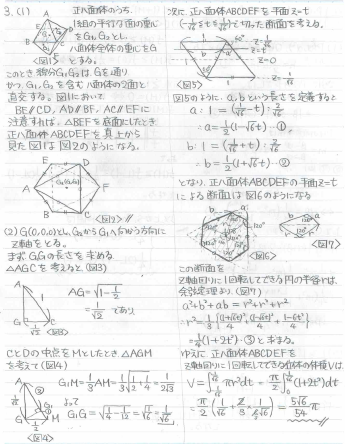 3. (1)
正八面体のうち、
1組の平行な面の重心
をG₁, G₂とし、
八面体全体の重心をG
とする。
<図1>
このとき線分G₁G₂はGを通り
かつ、G₁, G₂を含む八面体の2面と
直交する。図1において
BE // CD, AD // BF, AC // EF に
注意すれば、△BEFを底面にしたとき
正八面体ABCDEFを真上から
見た図は図2のようになる。
<図2> //
(2) G(0,0,0)とし、G₂からG₁へ向かう方向に
z軸をとる。
まずGG₁の長さを求める
△AGCを考えると、(図3)
AG = √(1 - 1/2)
= 1/√2 であり
<図3>
CとDの中点をMとしたとき △AGM
を考えて (図4)
G₁M = 1/3 AM = 1/3 √(1/2 + 1/4) = 1/(2√3)
よって
G₁G = √(1/4 - 1/12) = √(1/6) = 1/√6
<図4>
次に 正八面体ABCDEFを 平面 z=t
(-1/√6 ≦ t ≦ 1/√6) で切った断面を考える。
60°
z = 1/√6
z = t
z = 0
z = -1/√6
<図5>
図5のように a, b という長さを定義すると
a : 1 = (1/√6 - t) : 2/√6
∴ a = 1/2 (1 - √6t) ①,
b : 1 = (1/√6 + t) : 2/√6
∴ b = 1/2 (1 + √6t) ②
となり、正八面体ABCDEFの平面 z=t
による断面は 図6のようになる
120°
<図6>
<図7>
この断面を
z軸回りに1回転してできる円の半径rは、
余弦定理より、(図7)
a² + b² + ab = r² + r² + r²
∴ r² = 1/3 { (1+√6t)²/4 + (1-√6t)²/4 + (1-6t²)/4 }
= 1/4 (1 + 2t²) ③ と求まる。
ゆえに 正八面体ABCDEFを
z軸回りに1回転してできる立体の体積Vは
V = ∫ πr²dt = π/2 ∫ (1 + 2t²) dt
= π/2 (1/√6 + 2/3 × 1/(6√6)) = 5√6/54 π